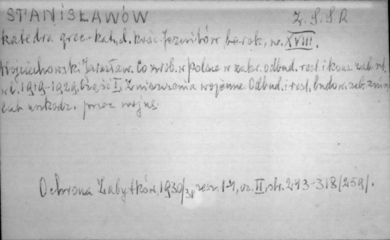 STANISŁAWÓW Z.S.S.R
katedra grec.-kat., d. kość. Jezuitów barok, w. XVIII.
Wojciechowski Jarosław. Co zrob. w Polsce w zakr. odbud. rest. i konc. zab. szt.
w l. 1919-1929. Część I. Zniszczenia wojenne. Odbud. i rest. budow. zab.
uszkodz. przez wojnę
Ochrona Zabytków, 1930/31 zesz. 1-4, cz. II, str. 243-318/259/.